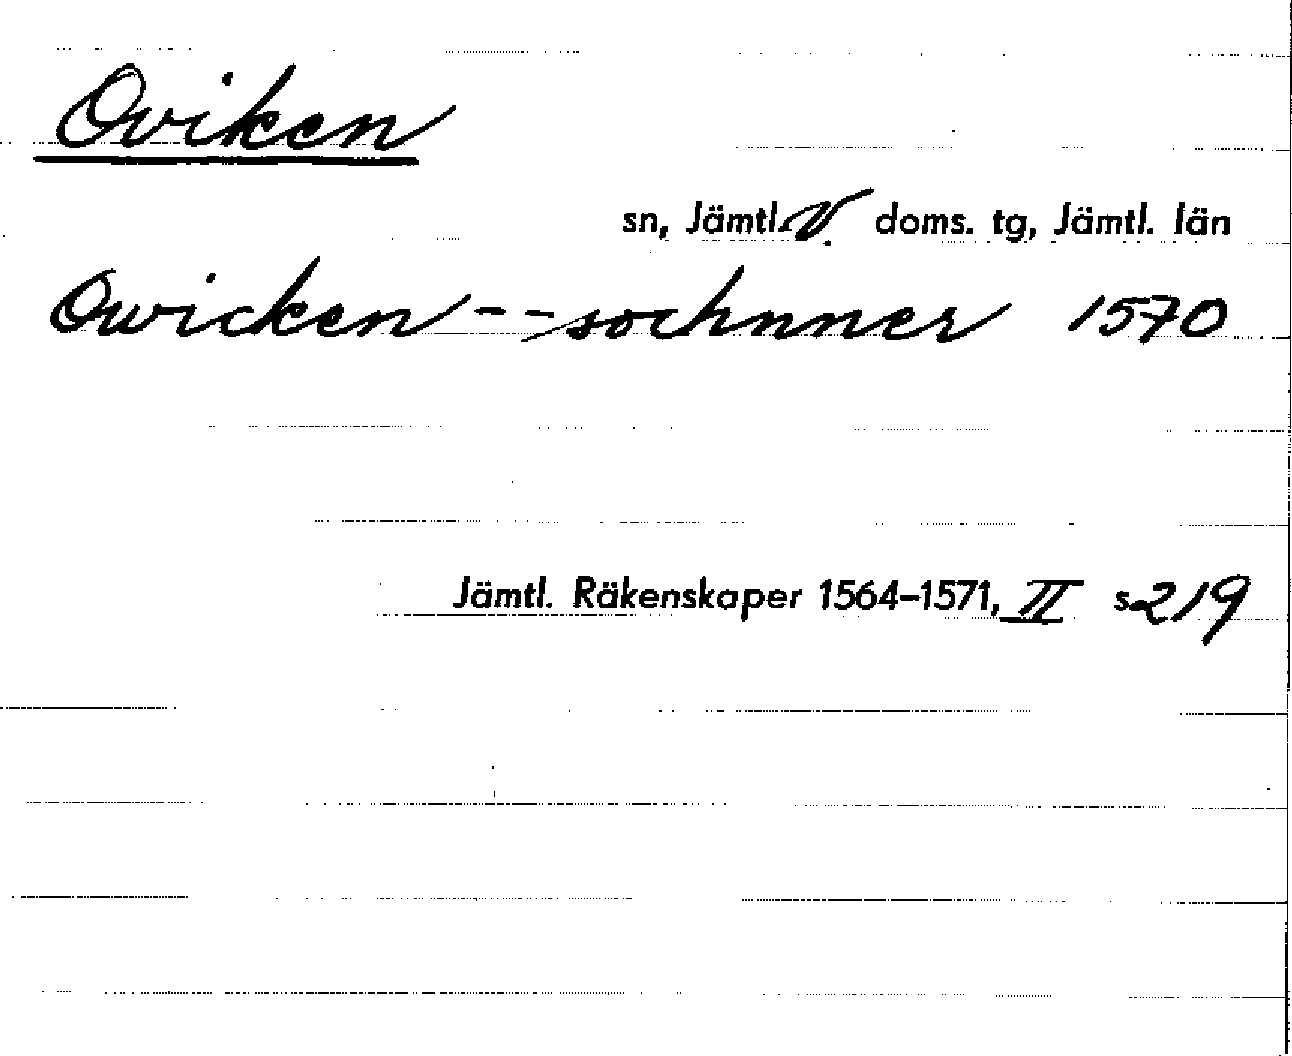 Oviken
sn, Jämtl. V. doms. tg, Jämtl. län
Owicken -- sochnner 1570
Jämtl. Räkenskaper 1564-1571, II s. 219